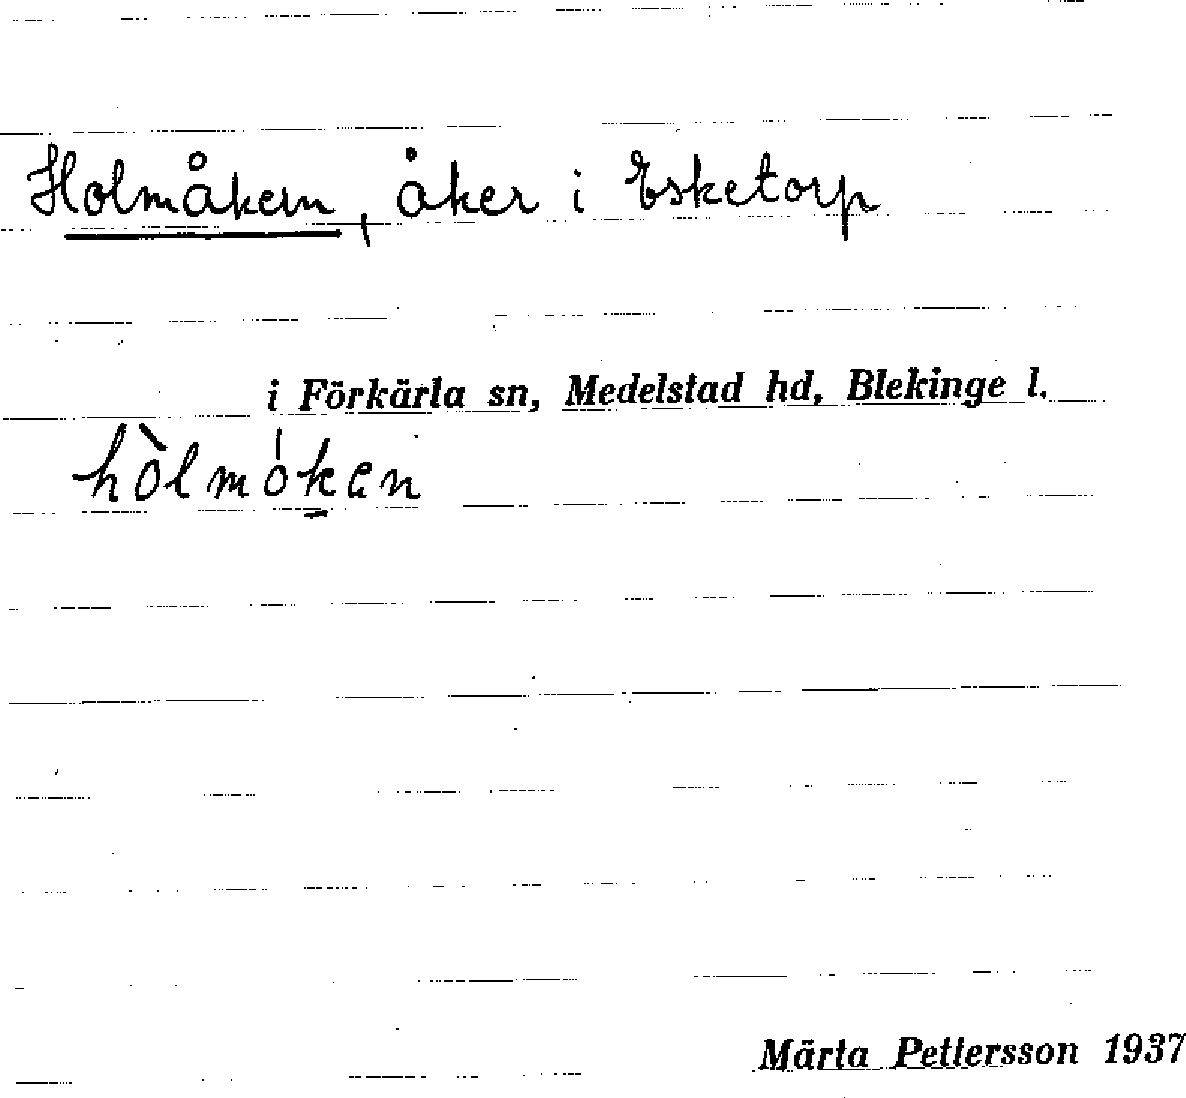 Holmåkern, åker i Esketorp
i Förkärla sn, Medelstad hd, Blekinge l.
hòlmóken
Märta Pettersson 1937